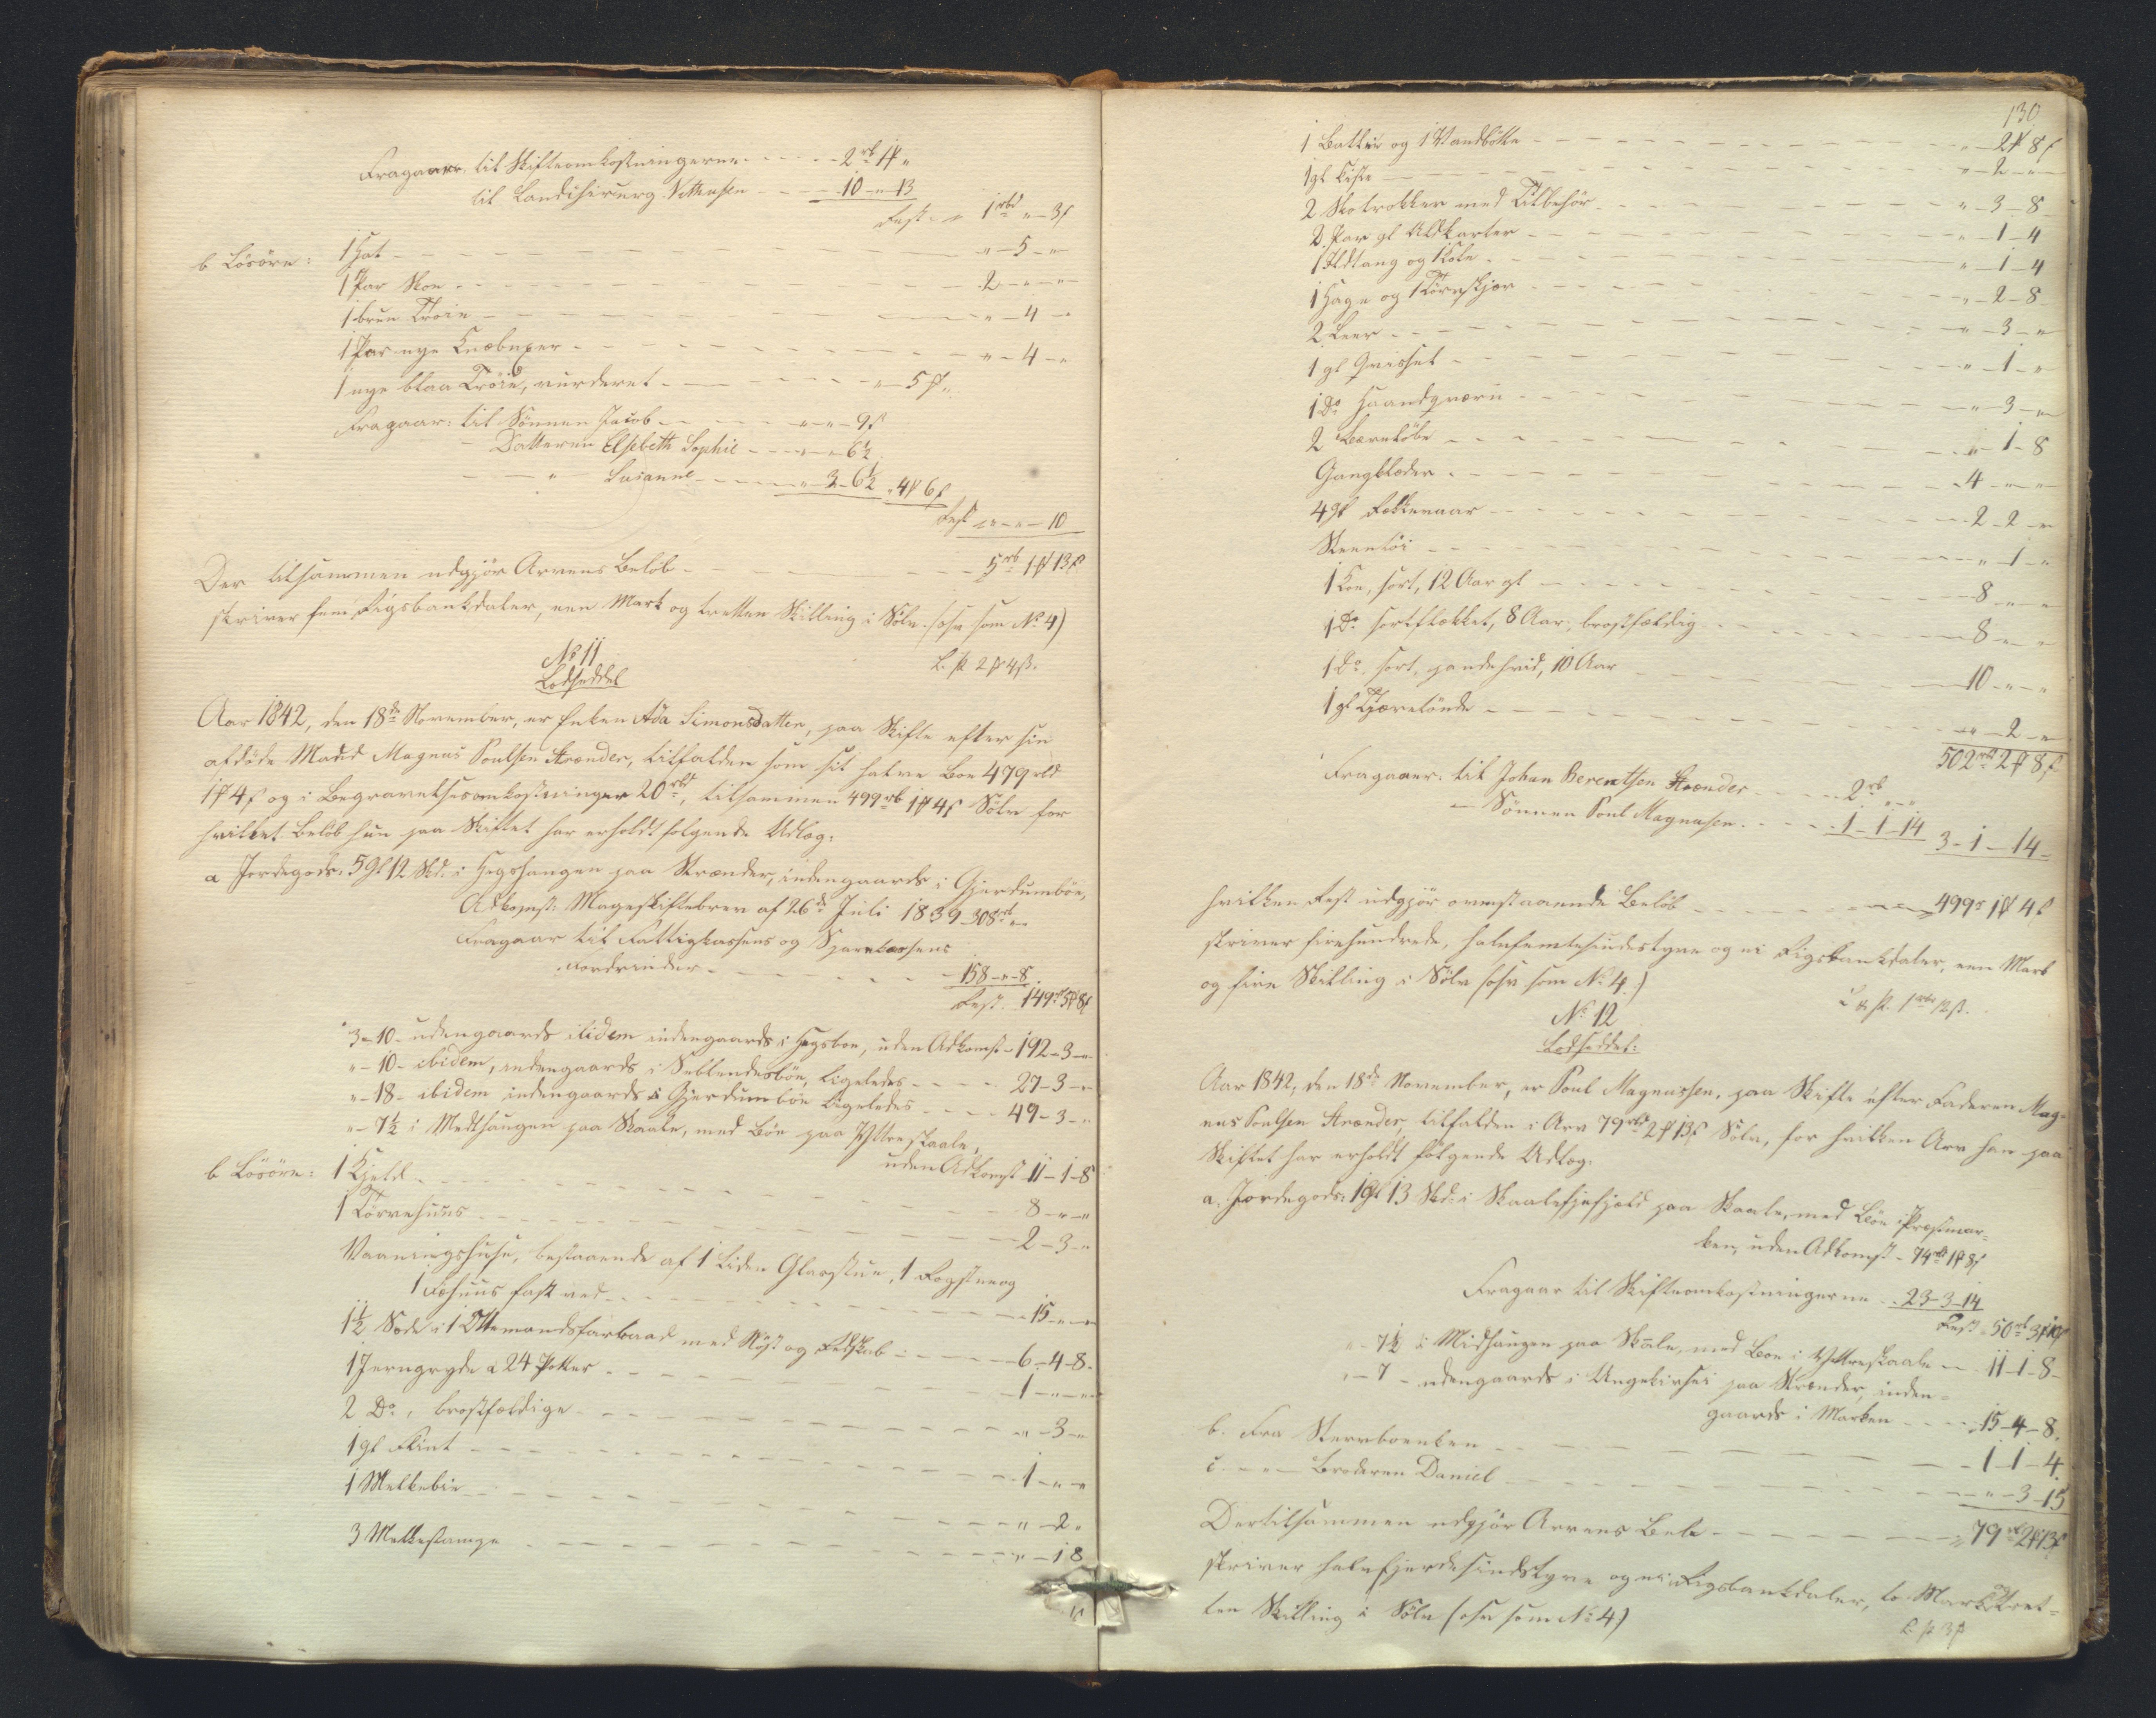 Fragaaer til Skifteomkostningerne - - - - 2 rb 1 # "
til Landchirurg Nolthusen - - - - 10 - " - 13
Rest - " 1 rbd " - 3 ß
b Løsøre: 1 Hat - - - - " - 5 - "
1 Par Skoe - - - - 2 - " - "
1 bruun Trøie - - - - " - 4 - "
1 Par nye Knæbuxer - - - - " - 4 - "
1 nye blaa Trøie, vurderet - - - - " - 5 # "
Fragaar: til Sønnen Jacob - - - - " - " - 9 ß
- Datteren Elsebeth Sophie - - - " - " - 6 1/2
- - " Susanne - - - - " - 3 - 6 1/2 " 4 # 6 ß
Rest - " - " - 10
Der tilsammen udgjør Arvens Beløb - - - - 5 rb 1 # 13 ß
skriver fem Rigsbankdaler, een Mark og tretten Skilling i Sølv. (osv som No 4)
No 11
Lodseddel
Aar 1842, den 18de November, er Enken Ada Simonsdatter, paa Skifte efter sin
afdøde Mand Magnus Poulsen Strænder, tilfalden som sit halve Boe 479 rbd
1 # 4 ß og i Begravelsesomkostninger 20 rbd, tilsammen 499 rb 1 # 4 ß Sølv for
hvilket Beløb hun paa Skiftet har erholdt følgende Udlæg:
a Jordegods: 5 Gl 12 Skd: i Hegshangen paa Strænder, indengaards i Gjerdumbøe,
Adkomst: Mageskiftebrev af 26de Juli 1839 - 308 rb "
Fragaar til Fattigkassens og Sparekassens
Fordringer - - - - 158 - " - 8
Rest. 149 rb 5 # 8 ß
" 3 - 10 - udengaards ibidem indengaards i Hegsboe, uden Adkomst - 192 - 3 - "
" - 10 - ibidem, indengaards i bøe, ligeledes - - - - 27 - 3 - "
" - 18 - ibidem indengaards i Gjerdumbøe ligeledes - - - - 49 - 3 - "
" - 7 1/2 i Medthaugen paa Skaale, med Bøe paa Yttreskaale,
uden Adkomst 11 - 1 - 8
b Løsøre: 1 Hjeld - - - - 8 - " - "
1 Tørvehuus - - - - 2 - 3 - "
Vaaningshuse, bestaaende af 1 liden Glarstue, 1 Rogstue og
1 Fæhuus fast ved - - - - 15 - " - "
1 1/2 Sæde i 1 Ottemandsfarbaad med Nøst og Redskab - - - - 6 - 4 - 8 -
1 Jerngryde a 24 Potter - - - - 1 - " - "
2 Do, brøstfældige - - - - " - 3 - "
1 gl Flint - - - - 1 - " - "
1 Melkebie - - - - " - 2 "
3 Melkestampe - - - - " - 1 8
130
1 Ballie og 1 Vandbøtte - - - - " - 2 # 8 ß
1 gl Kiste - - - - " - 2 - "
2 Skotrokker med Tilbehør - - - - " - 3 - 8
2 Par gl Uldkarter - - - - " - 1 - 4
1 Ildtang og 1 Kole - - - - " - 1 - 4
1 Hage og 1 Tørvskjær - - - - " - 2 - 8
2 Leer - - - - " - 3 - "
1 gl - - - - " - 1 - "
1 Do Haandqværn - - - - " - 3 - "
2 - - - - " - 1 - 8
Gangklæder - - - - 4 - " - "
4 gl - - - - 2 - 2 - "
Steentøi - - - - " - 1 - "
1 Koe, sort, 12 Aar gl - - - - 8 - " - "
1 Do sortflækket, 8 Aar, brøstfældig - - - - 8 - " - "
1 Do, sort, pandehvid, 10 Aar - - - - 10 - " - "
1 gl Tjæretønde - - - - " - 2 - "
502 rbd 2 # 8 ß
Fragaaer: til Johan Berentsen Strænder - - - - 2 rb " - "
- Sønnen Poul Magnusen - - - - 1 - 1 - 14 3 - 1 - 14 -
hvilken Rest udgjør ovenstaaende Beløb - - - - 499 rb 1 # 4 ß
skriver firehundrede, halvfemtesindstyve og ni Rigsbankdaler, een Mark
og fire Skilling i Sølv (osv som No 4.)
No 12
Lodseddel:
Aar 1842, den 18de November, er Poul Magnussen, paa Skifte efter Faderen Mag-
nus Poulsen Strænder, tilfalden i Arv 79 rbd 2 # 13 ß Sølv, for hvilken Arv han paa
Skiftet har erholdt følgende Udlæg:
a. Jordegods: 1 Gl 13 Skd: i paa Skaale, med Bøe i Præstmar-
ken, uden Adkomst - 74 rb 1 # 8 ß
Fragaar til Skifteomkostningerne - - 23 - 3 - 14
Rest - 50 rb 3 # 10 ß
" - 7 1/2 i Midhaugen paa Skaale, med Boe i Yttreskaale - - 11 - 1 - 8 -
" - 7 - udengaards i paa Strænder, inden-
gaards i Marken - - - - 15 - 4 - 8.
b. Fra Stervboenken - - - - 1 - 1 - 4.
c. - " - Broderen Daniel - - - - " - 3 - 15
Dertilsammen udgjør Arvens Beløb - - - - 79 rb 2 # 13 ß
skriver halvfjerdesindstyve og ni Rigsbankdaler, to Mark og tret-
ten Skilling i Sølv (osv som No 4)